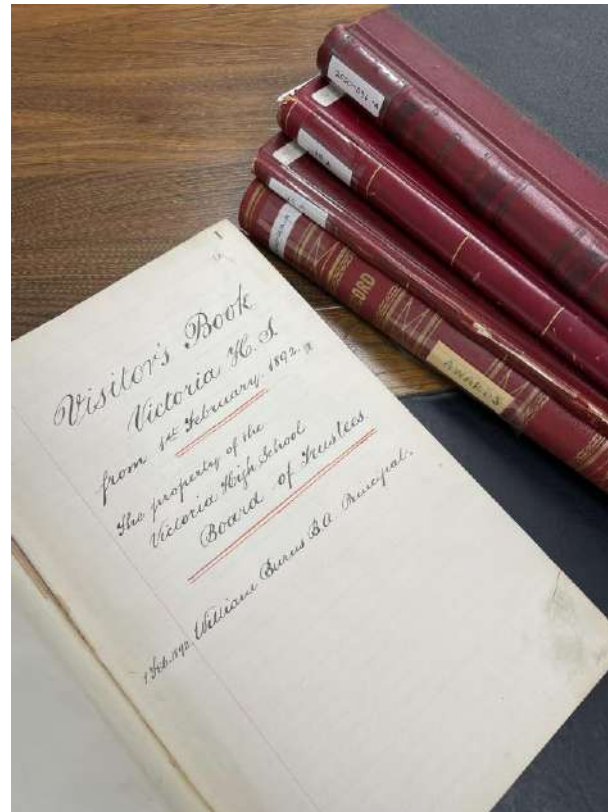 1
Visitor's Book
Victoria H. S.
from 1st February. 1892.
The property of the
Victoria High School
Board of Trustees.
1 Feb. 1892. William Burns B.A. Principal.
AWARDS